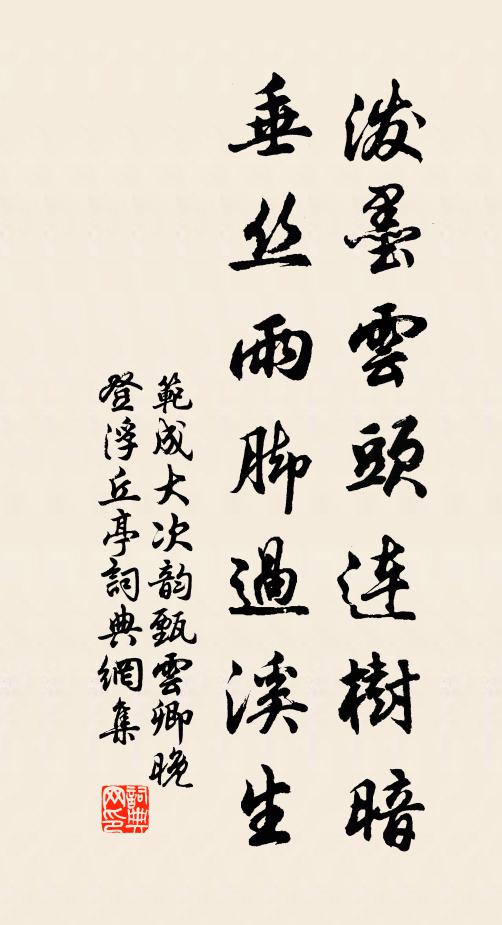 泼墨雲頭連樹暗
垂丝雨脚過溪生
範成大次韵甄雲卿晚
登浮丘亭詞典網集
詞典网印